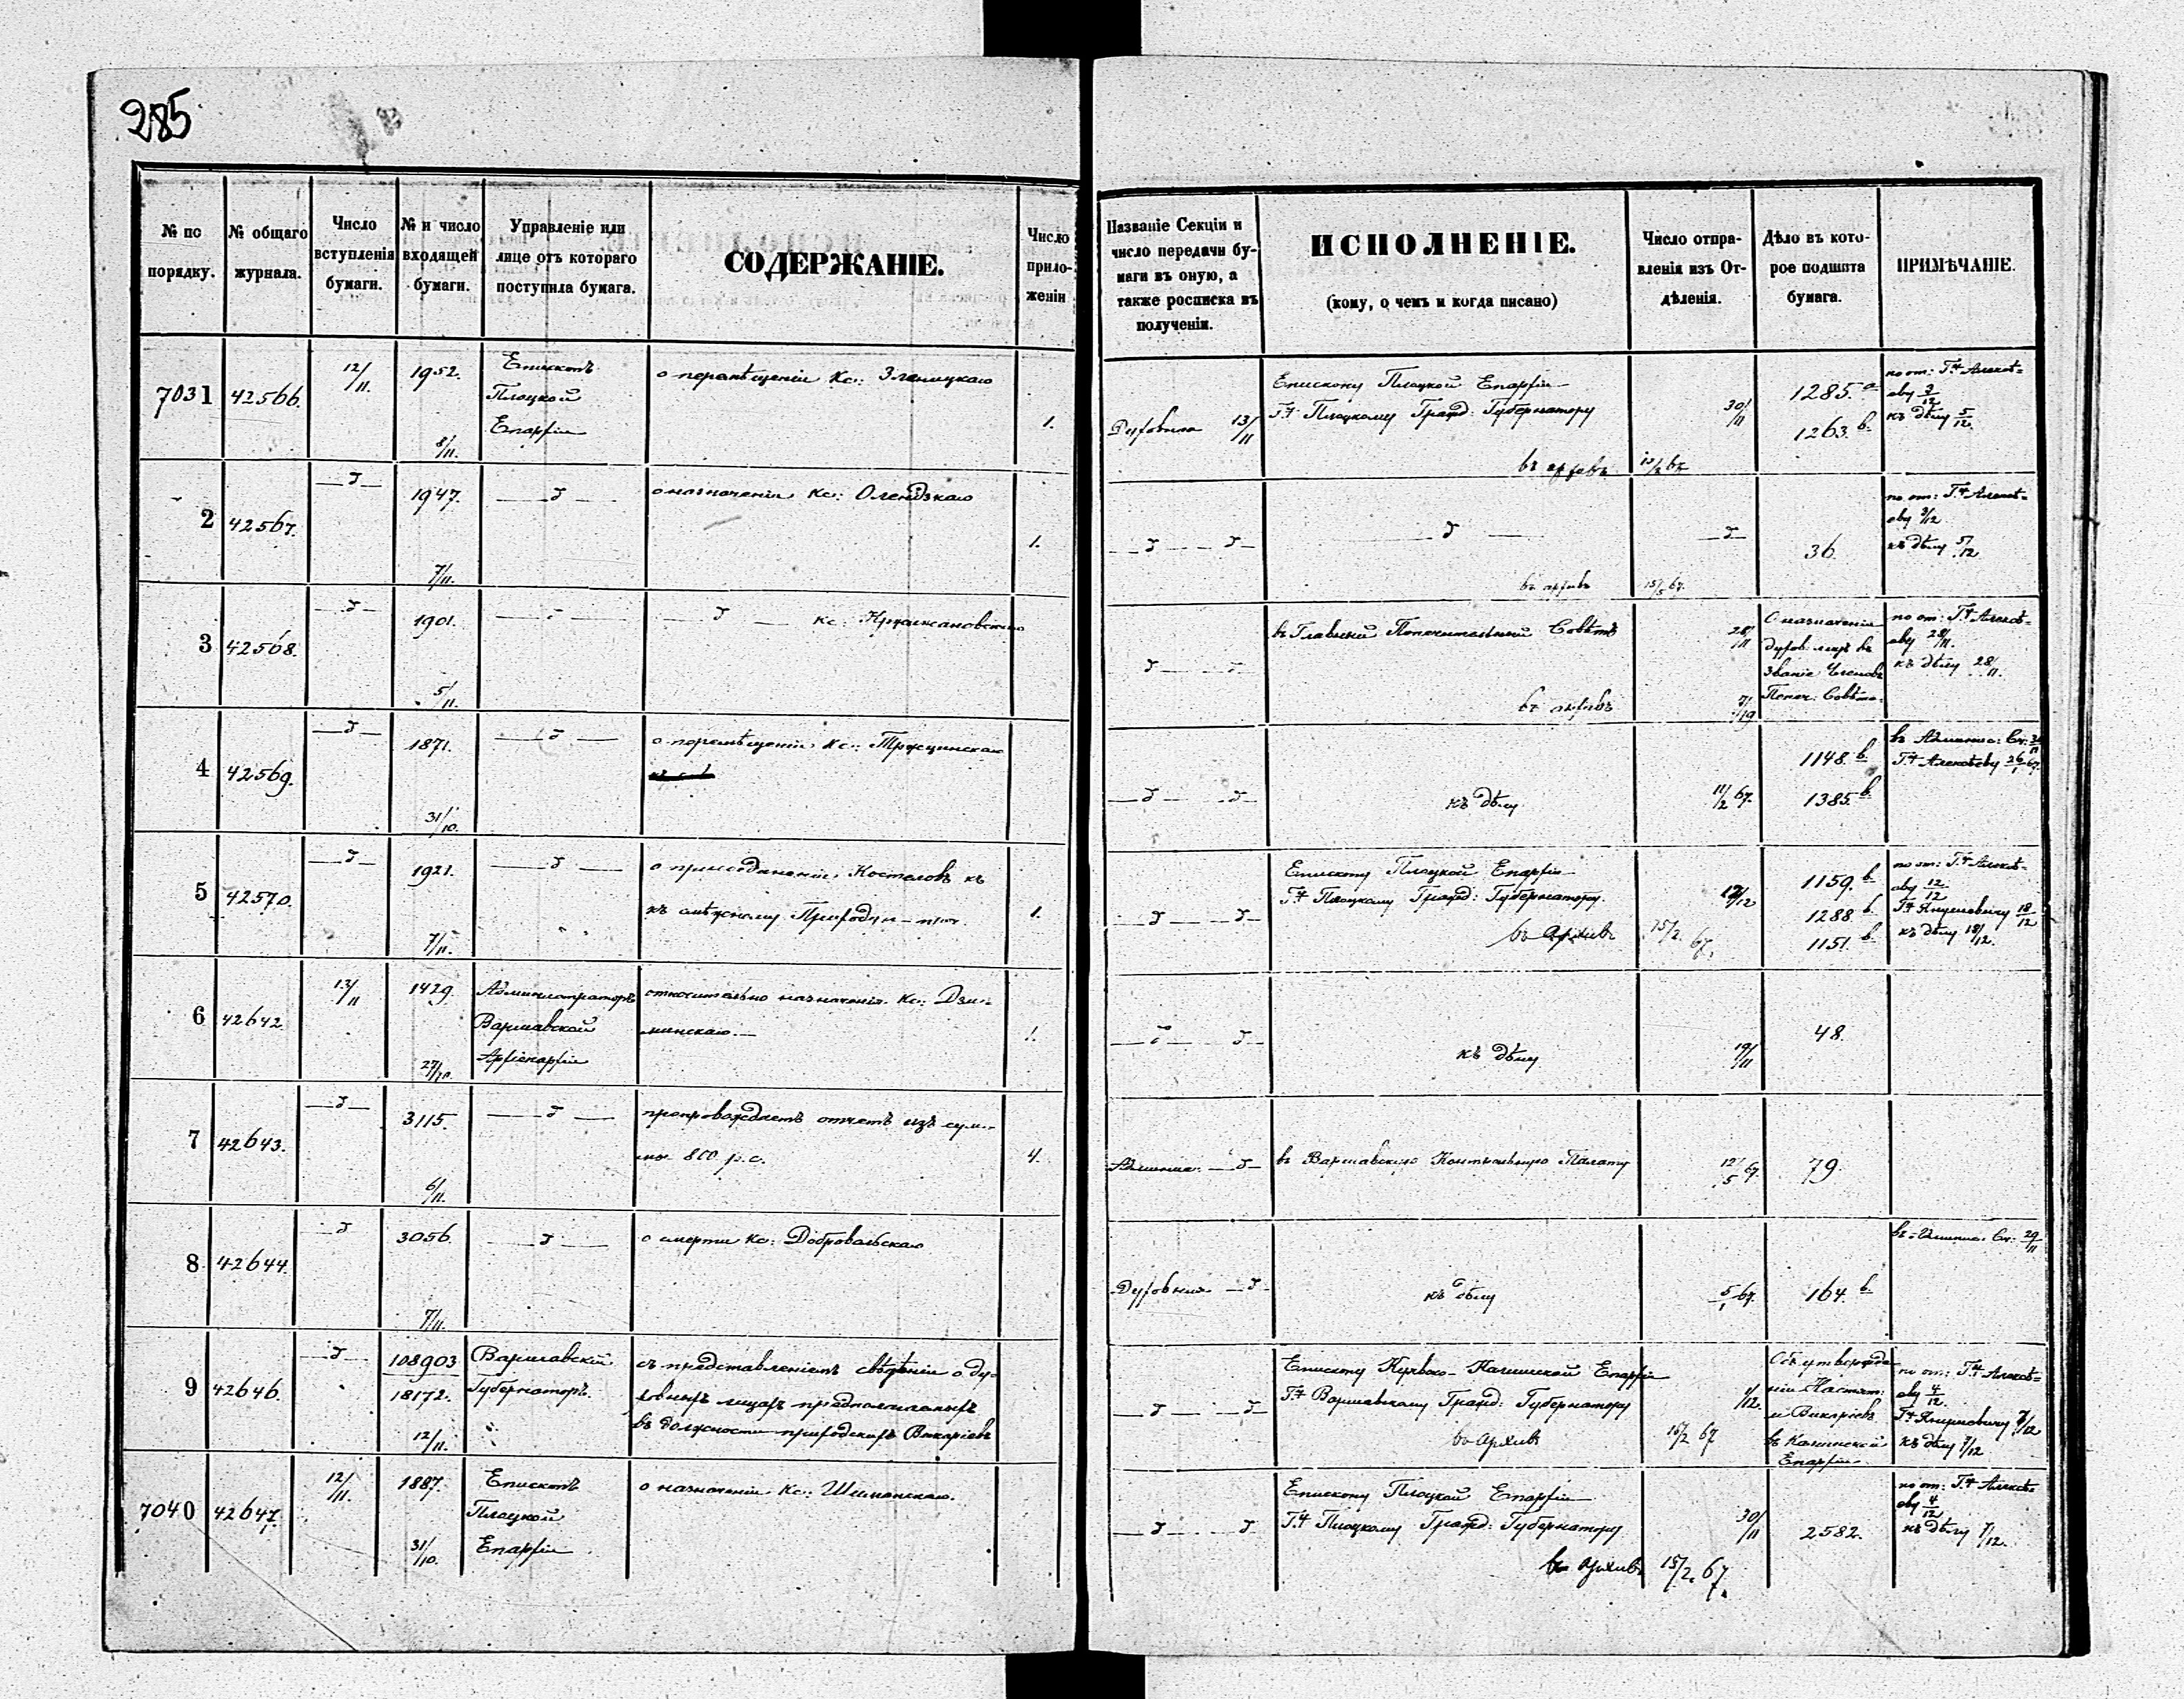 285
№ по порядку.
№ общаго журнала.
Число вступленія бумаги.
№ и число входящей бумаги.
Управленіе или лице отъ котораго поступила бумага.
СОДЕРЖАНІЕ.
Число приложеній
Названіе Секціи и число передачи бумаги въ оную, а также росписка въ полученіи.
ИСПОЛНЕНІЕ.
(кому, о чемъ и когда писано)
Число отправленія изъ Отдѣленія.
Дѣло въ которое подшита бумага.
ПРИМѢЧАНІЕ.
7031 42566. 12/11. 1952. Епископъ о перемѣщеніи Кс:
Плоцкой
8/11. Епархіи 1.
13/11 Епископу Плоцкой Епархіи
Гну Плоцкому Гражд: Губернатору 30/11
въ архивъ
1285. а
1263. b.
по от: Гну Алексѣеву 3/12
къ дѣлу 5/12.
2 42567. —д— 1947. —д— о назначеніи Кс:
7/11. 1.
—д— —д— —д— —д—
въ архивъ 15/5 67.
36.
по от: Гну Алексѣеву 3/12
къ дѣлу 5/12
3 42568. —д— 1901. —д— —д— Кс:
5/11.
—д— —д— въ Главный Попечительный Совѣтъ 28/11
въ архивъ
О назначеніи
духов: лицъ въ
званіе Членовъ
Попеч: Совѣта.
по от: Гну Алексѣеву 28/11.
къ дѣлу 28/11.
4 42569. —д— 1871. —д— о перемѣщеніи Кс: Тржцинскаго
31/10.
—д— —д— къ дѣлу 11/2 67.
1148. b.
1385. b.
Гну Алексѣеву 26/1 67.
5 42570. —д— 1921. —д— о присоединеніи Костеловъ къ
къ смѣжному Приходу
7/11. 1.
—д— —д— Епископу Плоцкой Епархіи
Гну Плоцкому Гражд: Губернатору.
въ Архивъ 15/2 67.
1159. b.
1288. b.
1151. b.
по от: Гну Алексѣеву 12/12
Гну Янушевичу 18/12
къ дѣлу 18/12.
6 42642 13/11 1429. Администраторъ относительно назначенія Кс: Дзи-
Варшавской минскаго.—
27/10. Архіепархіи 1.
—д— —д— къ дѣлу 19/11
48.
7 42643. —д— 3115. —д— препровождаетъ отчетъ изъ сум-
мы 800 р. с.
6/11. 4.
—д— въ Варшавскую Контрольную Палату 12/5 67.
79.
8 42644. —д— 3056. —д— о смерти Кс: Добровольскаго
7/11.
Духовная —д— къ дѣлу 5/1 67.
164. b.
29/11
9 42646. —д— 108903 Варшавскій съ представленіемъ свѣдѣній о ду-
18172. Губернаторъ. ховныхъ лицахъ предполагаемыхъ
12/11. въ должности приходскихъ Викаріевъ
—д— —д— Епископу Куявско-Калишской Епархіи
Гну Варшавскому Гражд: Губернатору 1/12.
въ Архивъ 15/2 67
Объ утвержде-
ніи Настоят:
и Викаріевъ
въ Калишской
Епархіи
по от: Гну Алексѣеву 4/12.
Гну Янушевичу 7/12
къ дѣлу 7/12
7040 42647. 12/11. 1887. Епископъ о назначеніи Кс: Шиманскаго.
Плоцкой
31/10. Епархіи
—д— —д Епископу Плоцкой Епархіи
Гну Плоцкому Гражд: Губернатору 30/11
въ Архивъ 15/2. 67.
2582.
по от: Гну Алексѣеву 4/12
къ дѣлу 7/12.